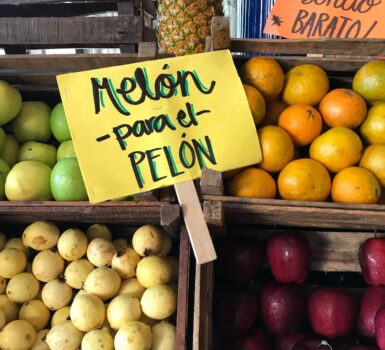 BARATO!
Melón
- para el -
PELÓN